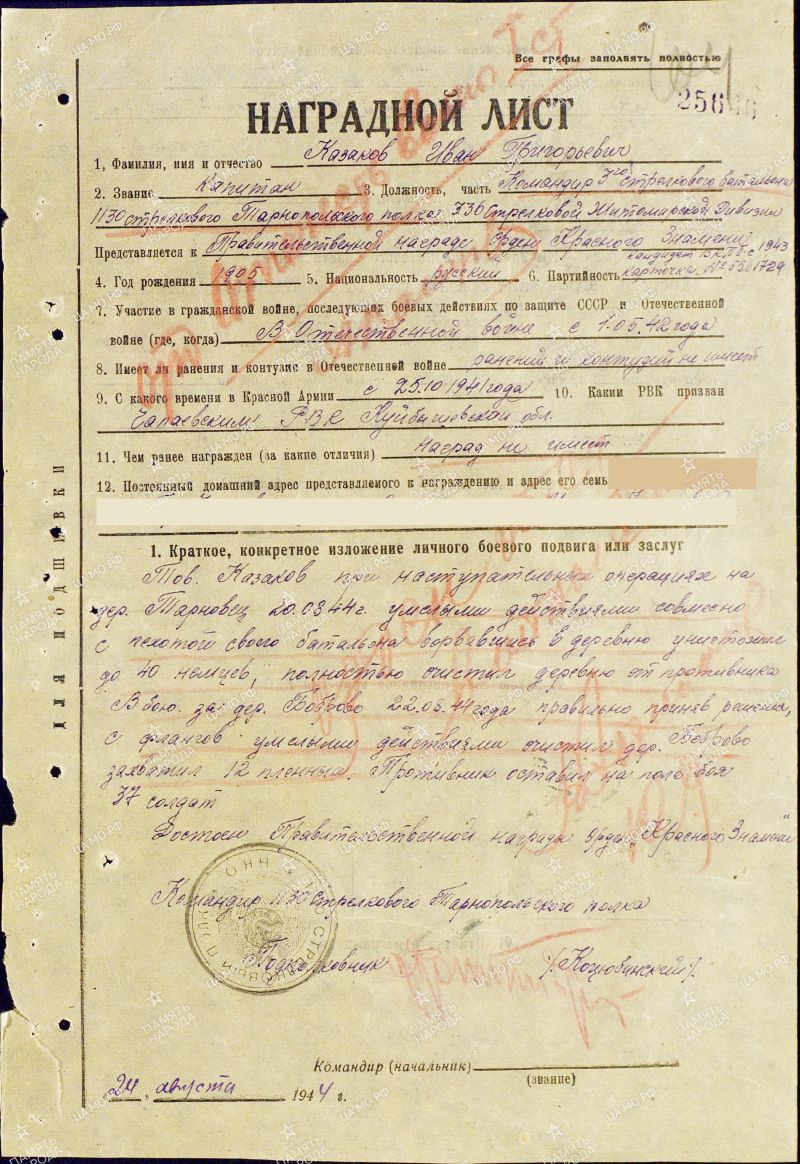 Все графы заполнять полностью
256
НАГРАДНОЙ ЛИСТ
1, Фамилия, имя и отчество Казаков Иван Григорьевич
2. Звание Капитан 3. Должность, часть Командир 3го стрелкового батальона
1130 стрелкового Тарнопольского полка 336 Стрелковой Житомирской Дивизии
Представляется к Правительственной награде Орден Красного Знамени
4. Год рождения 1905 5. Национальность русский 6. Партийность кандидат ВКПб с 1943 карточка № 5561729
7. Участие в гражданской войне, последующих боевых действиях по защите СССР и Отечественной
войне (где, когда) В Отечественной войне с 1-05.42 года
8. Имеет ли ранения и контузие в Отечественной войне ранений и контузий не имеет
9. С какого времени в Красной Армии с 25.10 1941 года 10. Каким РВК призван
Чапаевским РВК Куйбышевской обл.
11. Чем ранее награжден (за какие отличия) Наград не имеет
12. Постоянный домашний адрес представляемого к награждению и адрес его семь
1. Краткое, конкретное изложение личного боевого подвига или заслуг
Тов. Казаков при наступательных операциях на
дер. Тарновец 20.03 44 г. умелыми действиями совмесно
с пехотой своего батальона ворвавшись в деревню уничтожил
до 40 немцев, полностью очистил деревню от противника
В бою за дер. Боброво 22.03.44 года правильно приняв решения,
с флангов умелыми действиями очистил дер. Боброво
захватил 12 пленных. Противник оставил на поле боя
37 солдат
Достоин Правительственной награды Орден „Красного Знамени"
Командир 1130 Стрелкового Тарнопольского полка
Подполковник /Коцюбинский/.
Командир (начальник)
(звание)
24 августа 1944 г.
ДЛЯ ПОДШИВКИ
ПАМЯТЬ НАРОДА
ЦАМО.РФ